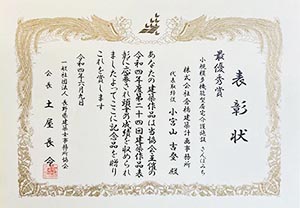 表彰状
最優秀賞
小規模多機能型居宅介護施設 さんぽみち
株式会社倉橋建築計画事務所
代表取締役 小宮山 吉登 殿
あなたの建築作品は当協会主催の
令和四年度第二十四回建築作品表
彰に応募され頭書の成績を収められ
ましたよってここに記念品を贈り
これを賞します
令和四年六月九日
一般社団法人 長野県建築士事務所協会
会長 土屋長令